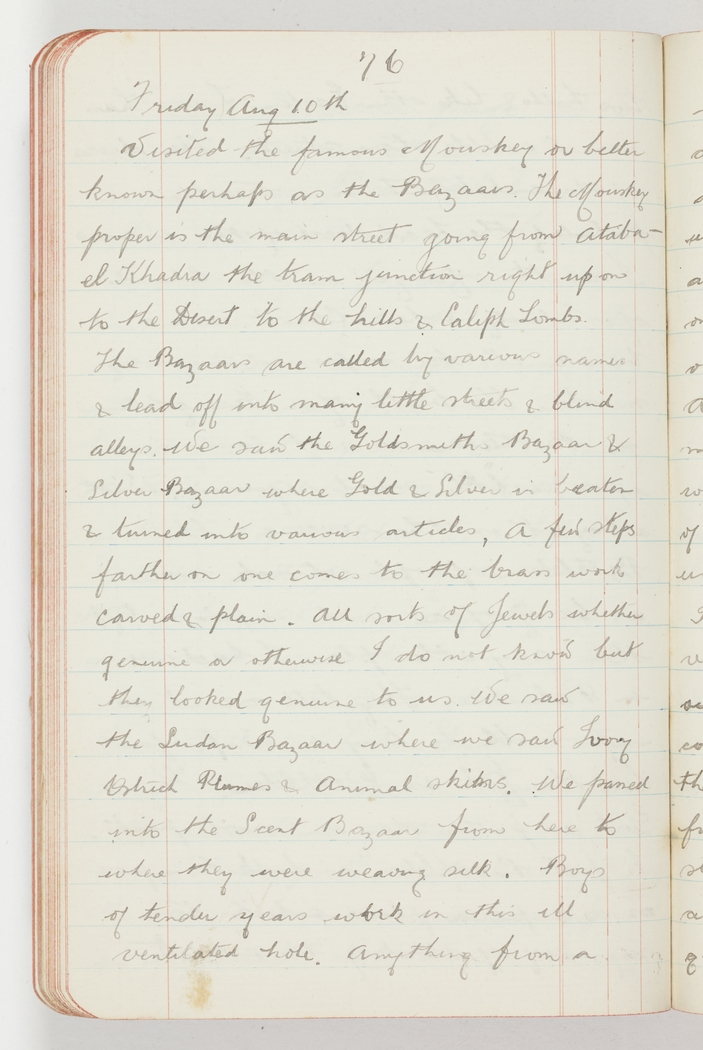 76
Friday Aug 10th
Visited the famous Mouskey or better
known perhaps as the Bazaars. The Mouskey
proper is the main street going from Ataba-
el Khadra the tram junction right up on
to the Desert to the hills & Caliph Tombs.
The Bazaars are called by various names
& lead off into many little streets & blind
alleys. We saw the Goldsmiths Bazaar &
Silver Bazaar where Gold & Silver is beaten
& turned into various articles, A few steps
farther on one comes to the brass work
carved & plain. All sorts of Jewels whether
genuine or otherwise I do not know but
they looked genuine to us. We saw
the Sudan Bazaar where we saw Ivory
Ostrich Plumes & Animal skins. We passed
into the Scent Bazaar from here to
where they were weaving silk. Boys
of tender years work in this ill
ventilated hole. Anything from a